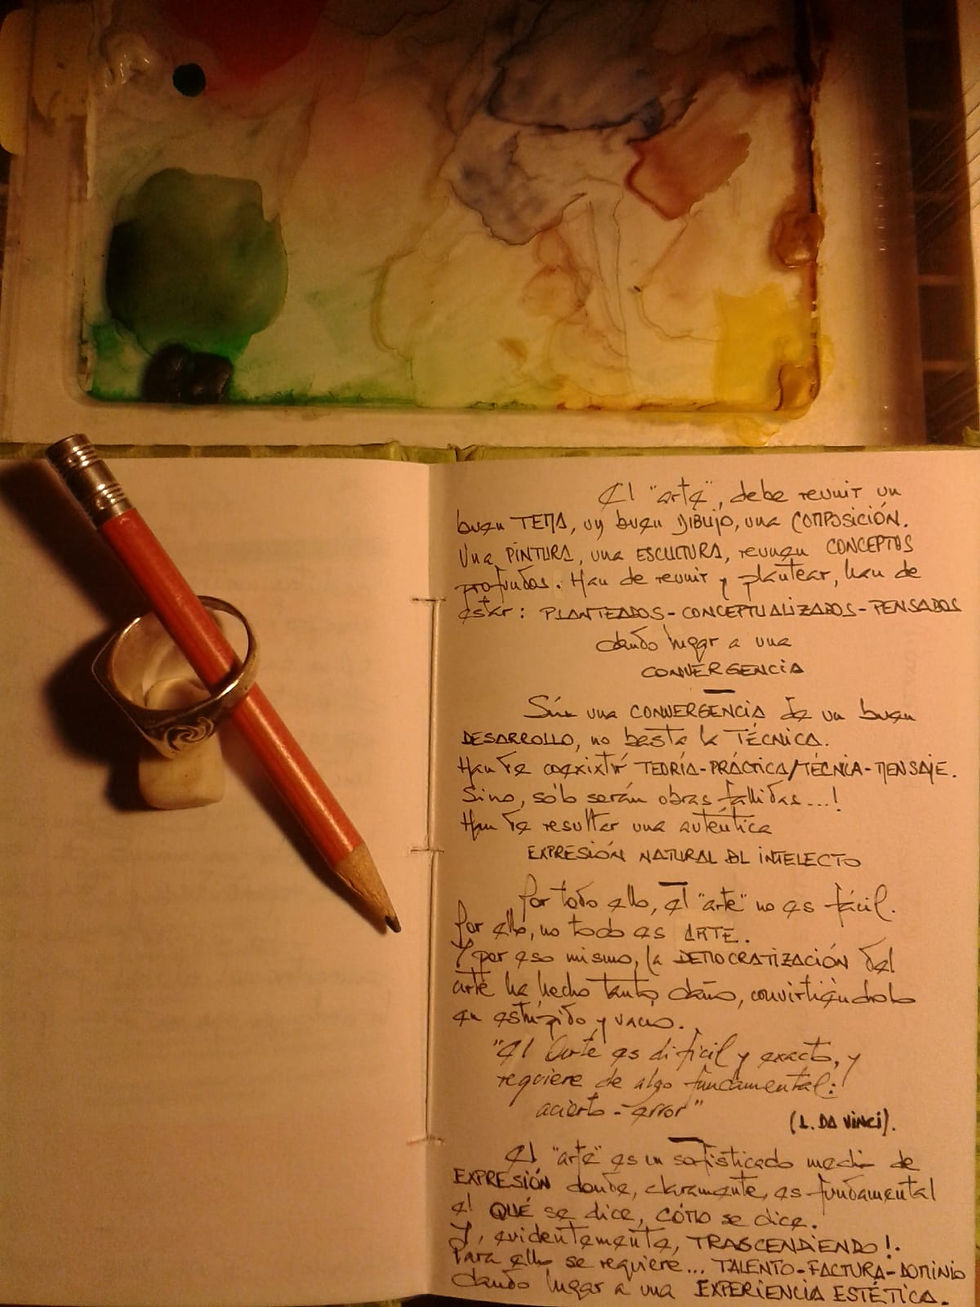 El "arte", debe reunir un
buen TEMA, uy buen DIBUJO, una COMPOSICIÓN.
Una PINTURA, una ESCULTURA, reunen CONCEPTOS
profundos. Han de reunir y plantear, han de
estar: PLANTEADOS-CONCEPTUALIZADOS-PENSADOS
dando lugar a una
CONVERGENCIA
Sin una CONVERGENCIA de un buen
DESARROLLO, no basta la TÉCNICA.
Han de coexixtir TEORÍA-PRÁCTICA/TÉCNICA-MENSAJE.
Sino, sólo serán obras fallidas...!
Han de resultar una auténtica
EXPRESIÓN NATURAL DL INTELECTO
Por todo ello, el "arte" no es fácil.
Por ello, no todo es ARTE.
Y por eso mismo, la DEMOCRATIZACIÓN del
arte ha hecho tanto daño, convirtiéndolo
en estúpido y vacuo.
"El Arte es difícil y exacto, y
requiere de algo fundamental:
acierto-error"
(L. DA VINCI).
El "arte" es un sofisticado medio de
EXPRESIÓN donde, claramente, es fundamental
el QUÉ se dice, CÓMO se dice.
Y, evidentemente, TRASCENDIENDO!.
Para ello se requiere... TALENTO-FACTURA-DOMINIO
dando lugar a una EXPERIENCIA ESTÉTICA.